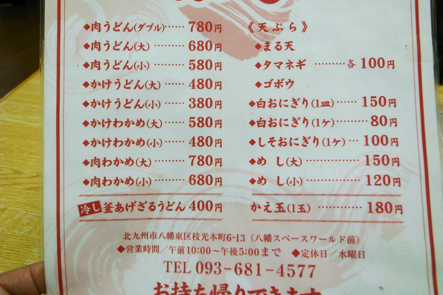 ◆肉うどん(ダブル)……780円
◆肉うどん(大)………680円
◆肉うどん(小)………580円
◆かけうどん(大)……480円
◆かけうどん(小)……380円
◆かけわかめ(大)……580円
◆かけわかめ(小)……480円
◆肉わかめ(大)………780円
◆肉わかめ(小)………680円
冷し釜あげざるうどん 400円
《天ぷら》
◆まる天
◆タマネギ………各100円
◆ゴボウ
◆白おにぎり(1皿)………150円
◆白おにぎり(1ケ)………80円
◆しそおにぎり(1ケ)……100円
◆めし(大)……………150円
◆めし(小)……………120円
かえ玉(1玉)……………180円
北九州市八幡東区枝光本町6-13(八幡スペースワールド前)
◆営業時間/午前10:00～午後5:00まで ◆定休日 水曜日
TEL 093-681-4577
お持ち帰りできます